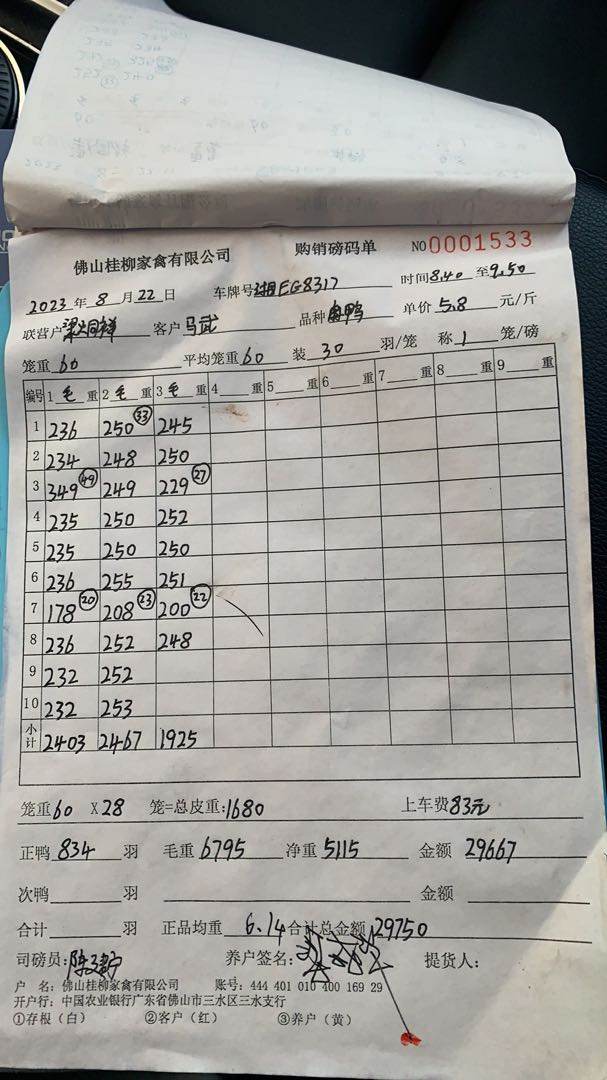 佛山桂柳家禽有限公司 购销磅码单 NO 0001533
2023 年 8 月 22 日 车牌号 湘EG8317 时间 8.40 至 9.50
联营户 客户 马武 品种 鸭 单价 5.8 元/斤
笼重 60 平均笼重 60 装 30 羽/笼 称 1 笼/磅
编号 1 毛 重 2 毛 重 3 毛 重 4 重 5 重 6 重 7 重 8 重 9 重
1 236 250 33 245
2 234 248 250
3 349 49 249 229 27
4 235 250 252
5 235 250 250
6 236 255 251
7 178 20 208 23 200 22
8 236 252 248
9 232 252
10 232 253
小计 2403 2467 1925
笼重 60 X 28 笼=总皮重: 1680 上车费 83元
正鸭 834 羽 毛重 6795 净重 5115 金额 29667
次鸭 羽 金额
合计 羽 正品均重 6.14 合计总金额 29750
司磅员: 养户签名: 提货人:
户 名: 佛山桂柳家禽有限公司 账号: 444 401 010 400 169 29
开户行: 中国农业银行广东省佛山市三水区三水支行
①存根（白） ②客户（红） ③养户（黄）